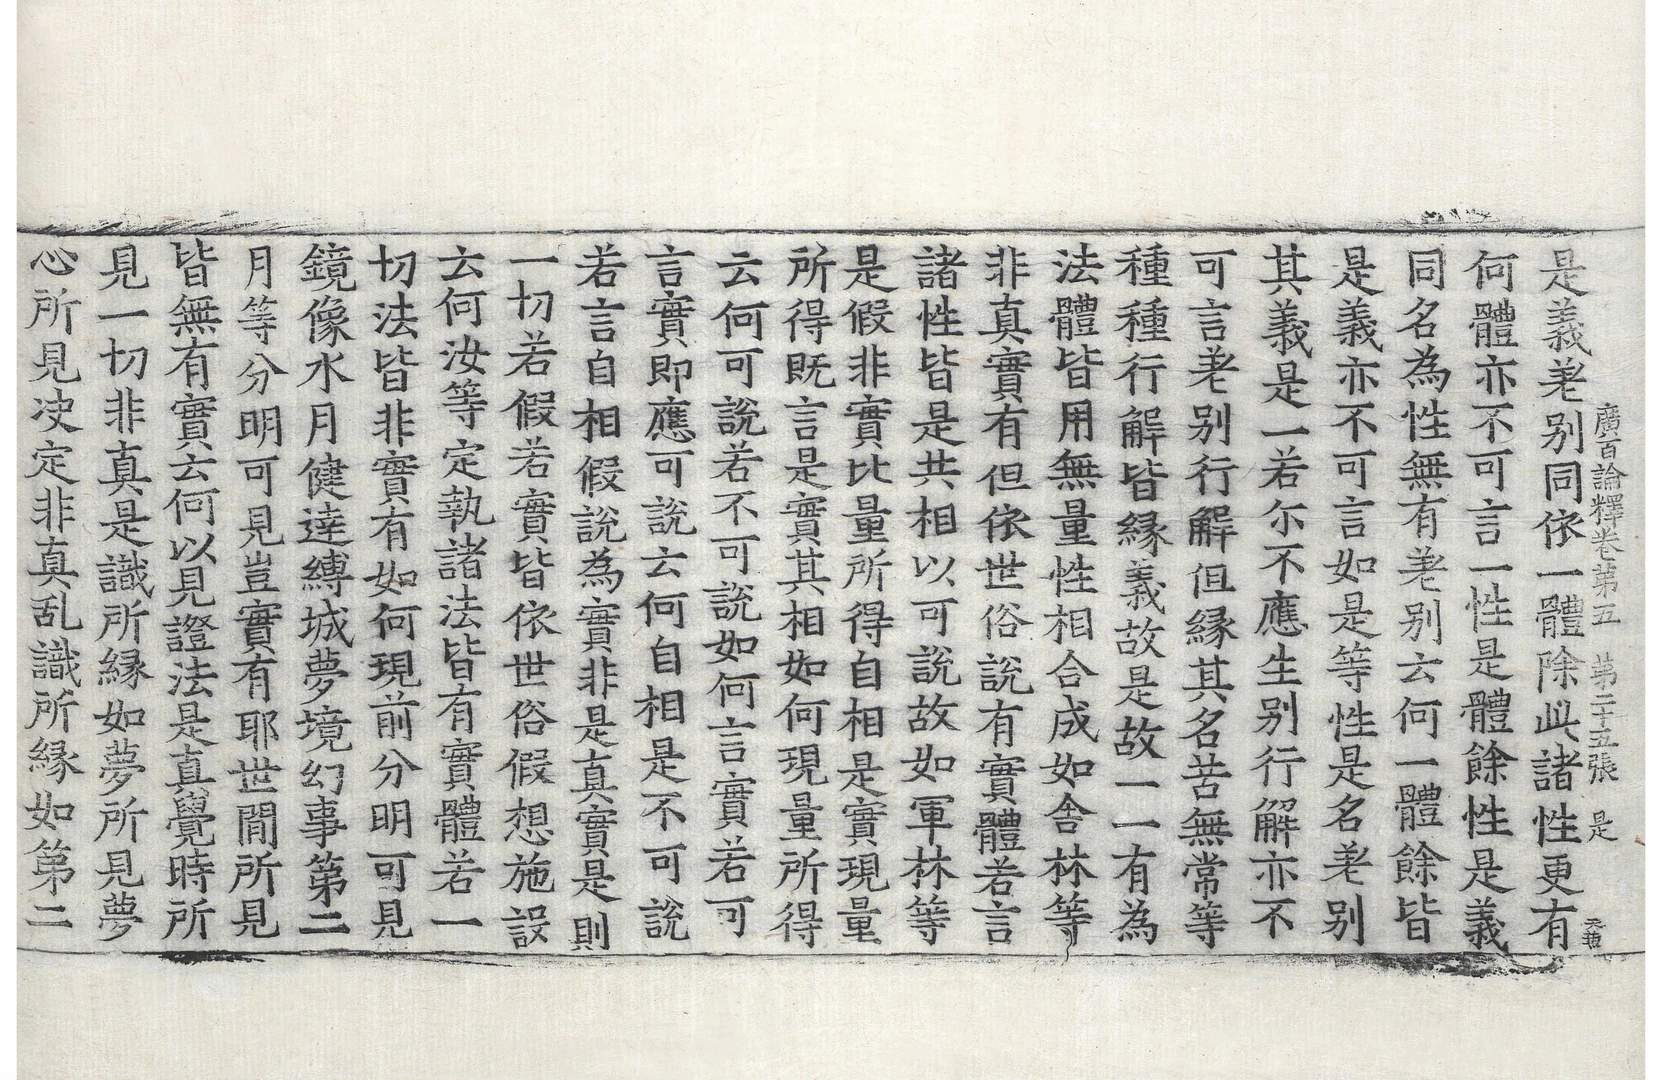 廣百論釋卷第五 第二十五張 是
是義差別同依一體除此諸性更有
何體亦不可言一性是體餘性是義
同名為性無有差別云何一體餘皆
是義亦不可言如是等性是名差別
其義是一若尒不應生別行解亦不
可言差別行解但緣其名苦無常等
種種行解皆緣義故是故一一有為
法體皆用無量性相合成如舍林等
非真實有但依世俗說有實體若言
諸性皆是共相以可說故如軍林等
是假非實比量所得自相是實現量
所得既言是實其相如何現量所得
云何可說若不可說如何言實若可
言實即應可說云何自相是不可說
若言自相假說為實非是真實是則
一切若假若實皆依世俗假想施設
云何汝等定執諸法皆有實體若一
切法皆非實有如何現前分明可見
鏡像水月健達縛城夢境幻事第二
月等分明可見豈實有耶世間所見
皆無有實云何以見證法是真覺時所
見一切非真是識所緣如夢所見夢
心所見決定非真乱識所緣如第二